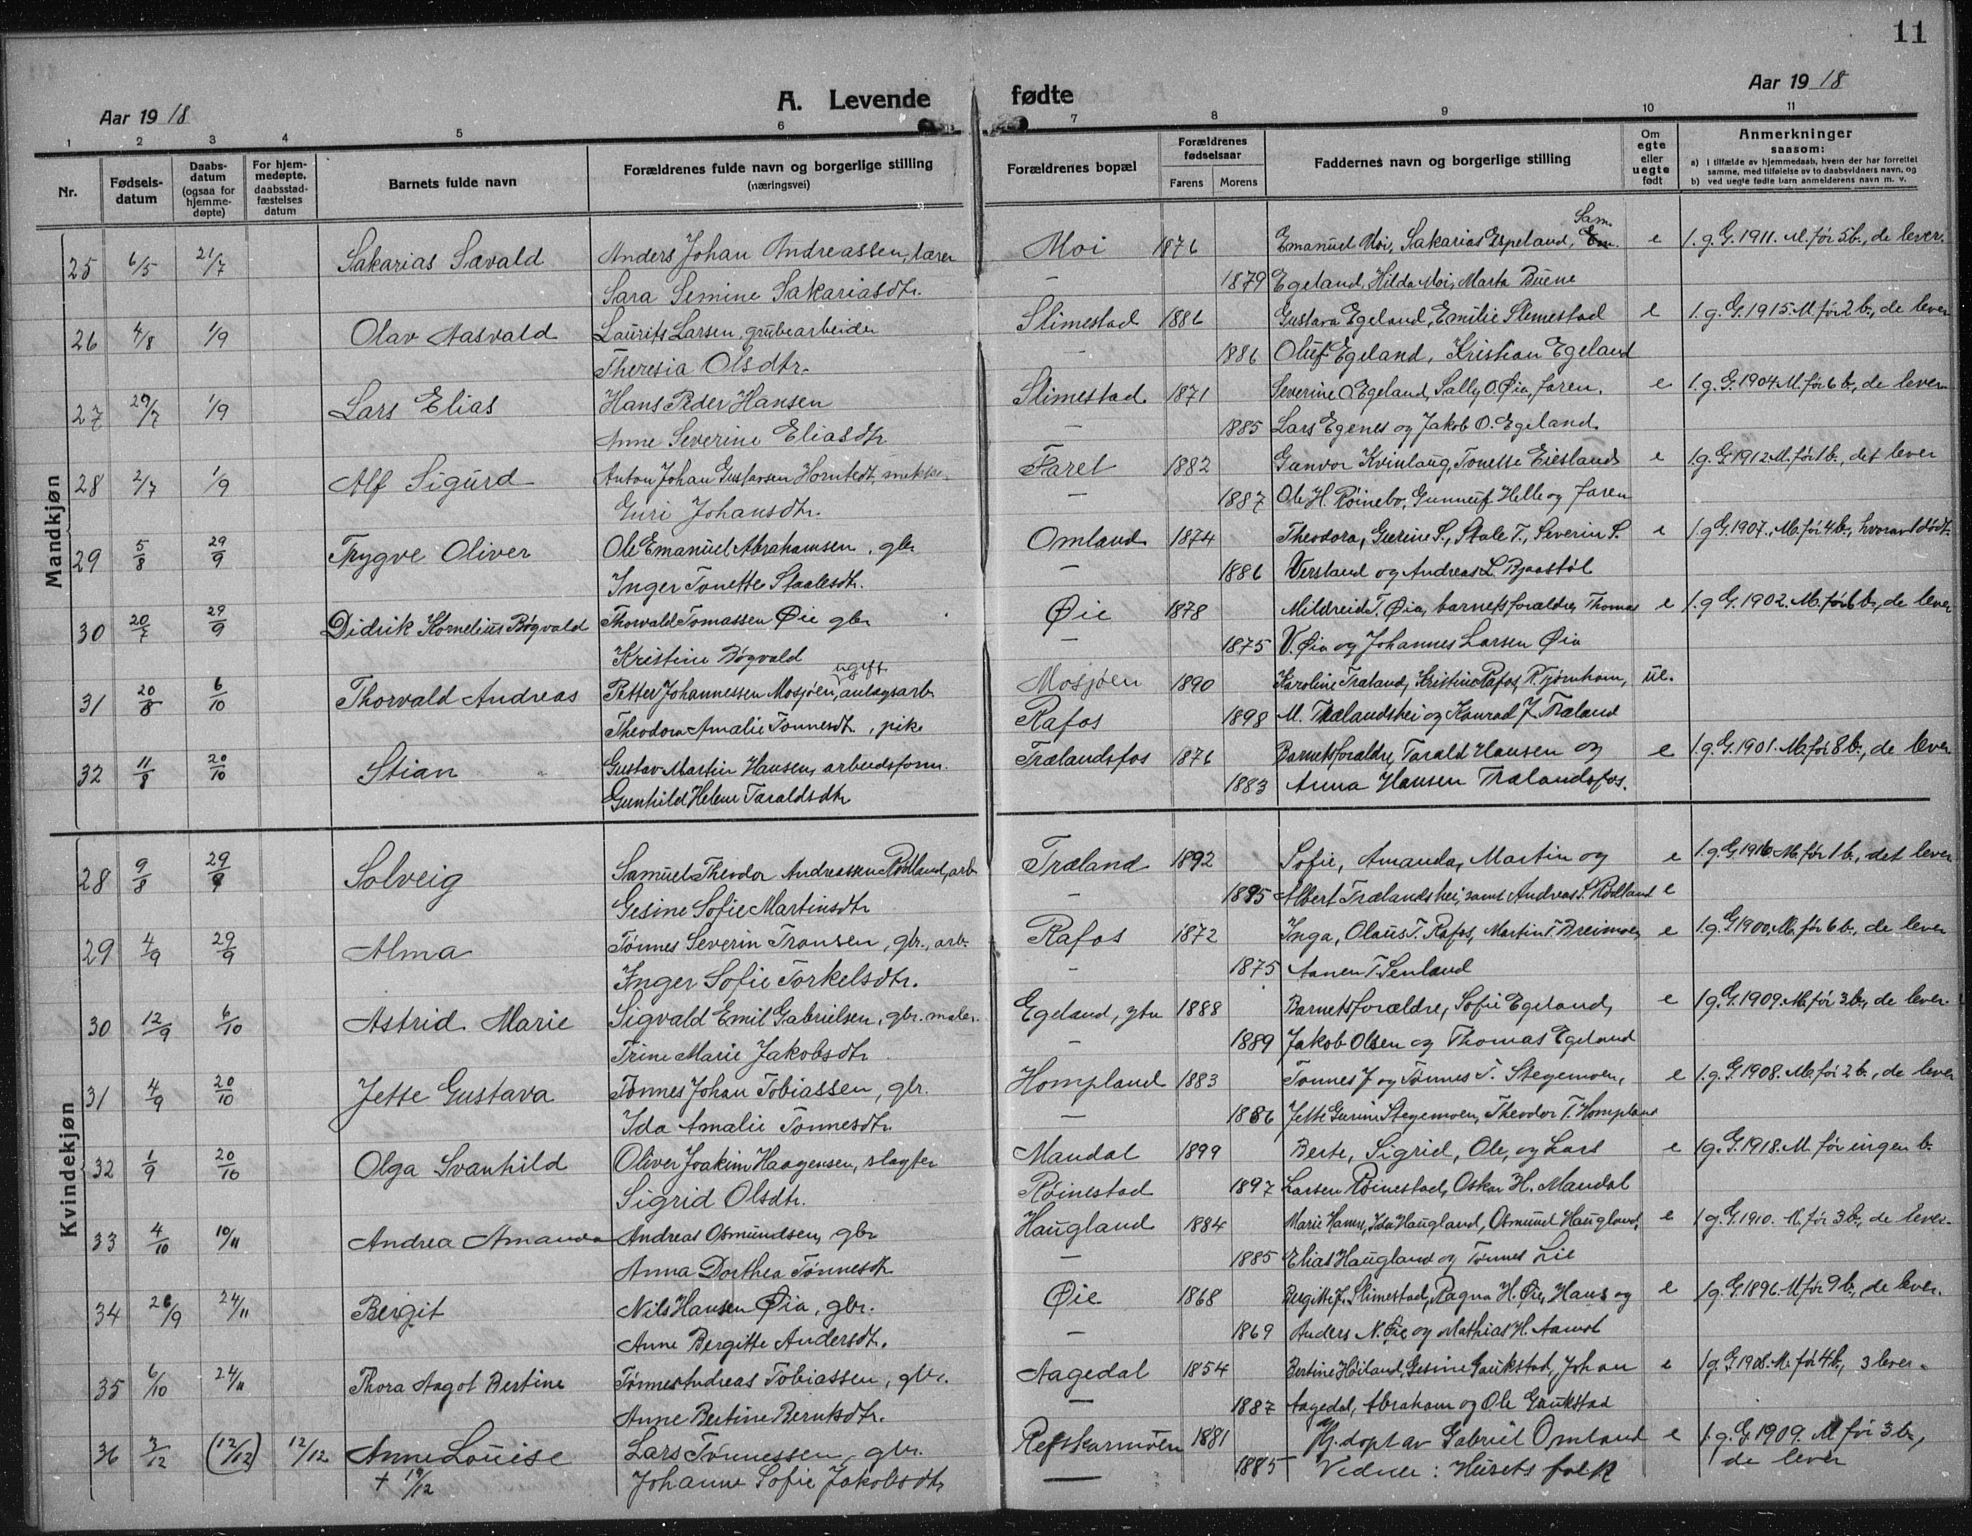 11
Aar 1918
A. Levende fødte
Aar 1918
1 2 3 4 5 6 7 8 9 10 11
Nr.
Fødsels-
datum
Daabs-
datum
(ogsaa for
hjemme-
døpte)
For hjem-
medøpte,
daabsstad-
fæstelses
datum
Barnets fulde navn
Forældrenes fulde navn og borgerlige stilling
(næringsvei)
Forældrenes bopæl
Forældrenes
fødselsaar
Farens Morens
Faddernes navn og borgerlige stilling
Om
egte
eller
uegte
født
Anmerkninger
saasom:
a) I tilfælde av hjemmedaab, hvem der har forrettet
samme, med tilføielse av to daabsvidners navn, og
b) ved uegte fødte barn anmelderens navn m. v.
Mandkjøn
25 6/5 21/7 Sakarias Sævald Anders Johan Andreassen, lærer Moi 1876 Emanuel Moi, Sakarias Espeland, Sam. e 1.g.G. 1911. M. før 5 b., de lever.
Sara Semine Sakariasdtr. — 1879 Egeland, Hilda Moi, Marta Buene
26 4/8 1/9 Olav Aasvald Laurits Larsen, grubearbeider Slimestad 1886 Gustava Egeland, Emilie Slimestad e 1.g.G. 1915. M. før 2 b., de lever
Theresia Olsdtr. — 1886 Oluf Egeland, Kristian Egeland
27 29/7 1/9 Lars Elias Hans Peder Hansen Slimestad 1871 Severine O Egeland, Sally O. Øia, faren. e 1.g.G. 1904 M. før 6 b., de lever
Anne Severine Eliasdtr — 1885 Lars Egenes og Jakob O. Egeland.
28 2/7 1/9 Alf Sigurd Anton Johan Gustavsen Horntedt, Faret 1882 Gunvor Kvinlaug, Tonette Eiesland e 1.g.G. 1912 M. før 1 b., det lever
Guri Johansdtr. — 1887 Ole H. Røinebo, Gunnuf Helle og faren
29 5/8 29/9 Trygve Oliver Ole Emanuel Abrahamsen, gbr Omland 1874 Theodora, Gurine S., Stale T., Severin S. e 1.g.G. 1907. M. før 4 b., hvorav 1 dødt.
Inger Tonette Staalesdtr. — 1886 Versland og Andreas L. Bjaastøl
30 20/7 29/9 Didrik Kornelius Bøgvald Thorvald Tomassen Øie gbr Øie 1878 Mildreid T. Øia, barnets forældre, Thomas e 1.g.G. 1902. M. før 6 b., de lever
Kristine Bøgvald — 1875 V. Øia og Johannes Larsen Øia
31 20/8 6/10 Thorvald Andreas Petter Johannessen Mosjøen, ugift anlægsarb. Mosjøen 1890 Karoline Træland, Kristine Rafos, K. Tjørnhom, ue.
Theodora Amalie Tønnesdtr, pike Rafos 1898 M. Trælandshei og Konrad J. Træland
32 11/8 20/10 Stian Gustav Martin Hansen, arbeidsform. Trælandsfos 1876 Barnets forældre, Tarald Hansen og e 1.g.G. 1901. M. før 8 b., de lever
Gunhild Helene Taraldsdtr 1883 Anna Hansen Trælandsfos.
Kvindekjøn
28 9/8 29/9 Solveig Samuel Theodor Andreassen Rødland, arb. Træland 1892 Sofie, Amanda, Martin og e 1.g.G. 1916 M. før 1 b., det lever
Gesine Sofie Martinsdtr — 1895 Albert Trælandshei, samt Andreas S. Rødland e
29 4/9 29/9 Alma Tønnes Severin Tronsen, gbr., arb. Rafos 1872 Inga, Olaus T. Rafos, Martin T Breimoen e 1.g.G. 1900. M. før 6 b., de lever
Inger Sofie Torkelsdtr. — 1875 Aanen T. Senland
30 12/9 6/10 Astrid Marie Sigvald Emil Gabrielsen, gbr. maler. Egeland, ytre 1888 Barnets forældre, Sofie Egeland, e 1.g.G. 1909. M. før 3 b., de lever.
Trine Marie Jakobsdtr — 1889 Jakob Olsen og Thomas Egeland
31 4/9 20/10 Jette Gustava Tønnes Johan Tobiassen, gbr. Hompland 1883 Tønnes J og Tønnes T. Stegemoen, e 1.g.G. 1908. M. før 2 b., de lever
Ida Amalie Tønnesdtr. — 1886 Jette Gurine Stegemoen, Theodor T. Hompland
32 1/9 20/10 Olga Svanhild Oliver Joakim Haagensen, slagter Mandal 1899 Berte, Sigrid, Ole, og Lars e 1.g.G. 1918. M. før ingen b.
Sigrid Olsdtr. Røinestad 1897 Larsen Røinestad, Oskar H. Mandal
33 4/10 10/11 Andrea Amanda Andreas Osmundsen, gbr Haugland 1884 Marie Hamre, Ida Haugland, Osmund Haugland, e 1.g.G. 1910. M. før 3 b., de lever.
Anna Dorthea Tønnesdtr — 1885 Elias Haugland og Tønnes Lie
34 26/9 24/11 Bergit Nils Hansen Øia, gbr. Øie 1868 Birgitte J. Slimestad, Ragna H. Øie, Hans og e 1.g.G. 1896. M. før 9 b., de lever.
Anne Bergitte Andersdtr. — 1869 Anders N. Øie og Mathias H. Aamot
35 6/10 24/11 Thora Aagot Bertine Tønnes Andreas Tobiassen, gbr. Aagedal 1854 Bertine Høiland, Gesine Gaukstad, Johan e 1.g.G. 1908. M. før 4 b., 3 lever.
Anne Bertine Berntsdtr. — 1887 Aagedal, Abraham og Ole Gaukstad
36 3/12 (12/12) 12/12 Anne Louise Lars Tønnessen, gbr. Refskarmoen 1881 Hj. døpt av Gabriel Omland e 1.g.G 1909. M før 3 b,
+ 19/12 Johanne Sofie Jakobsdtr — 1885 Vidner: Husets folk de lever